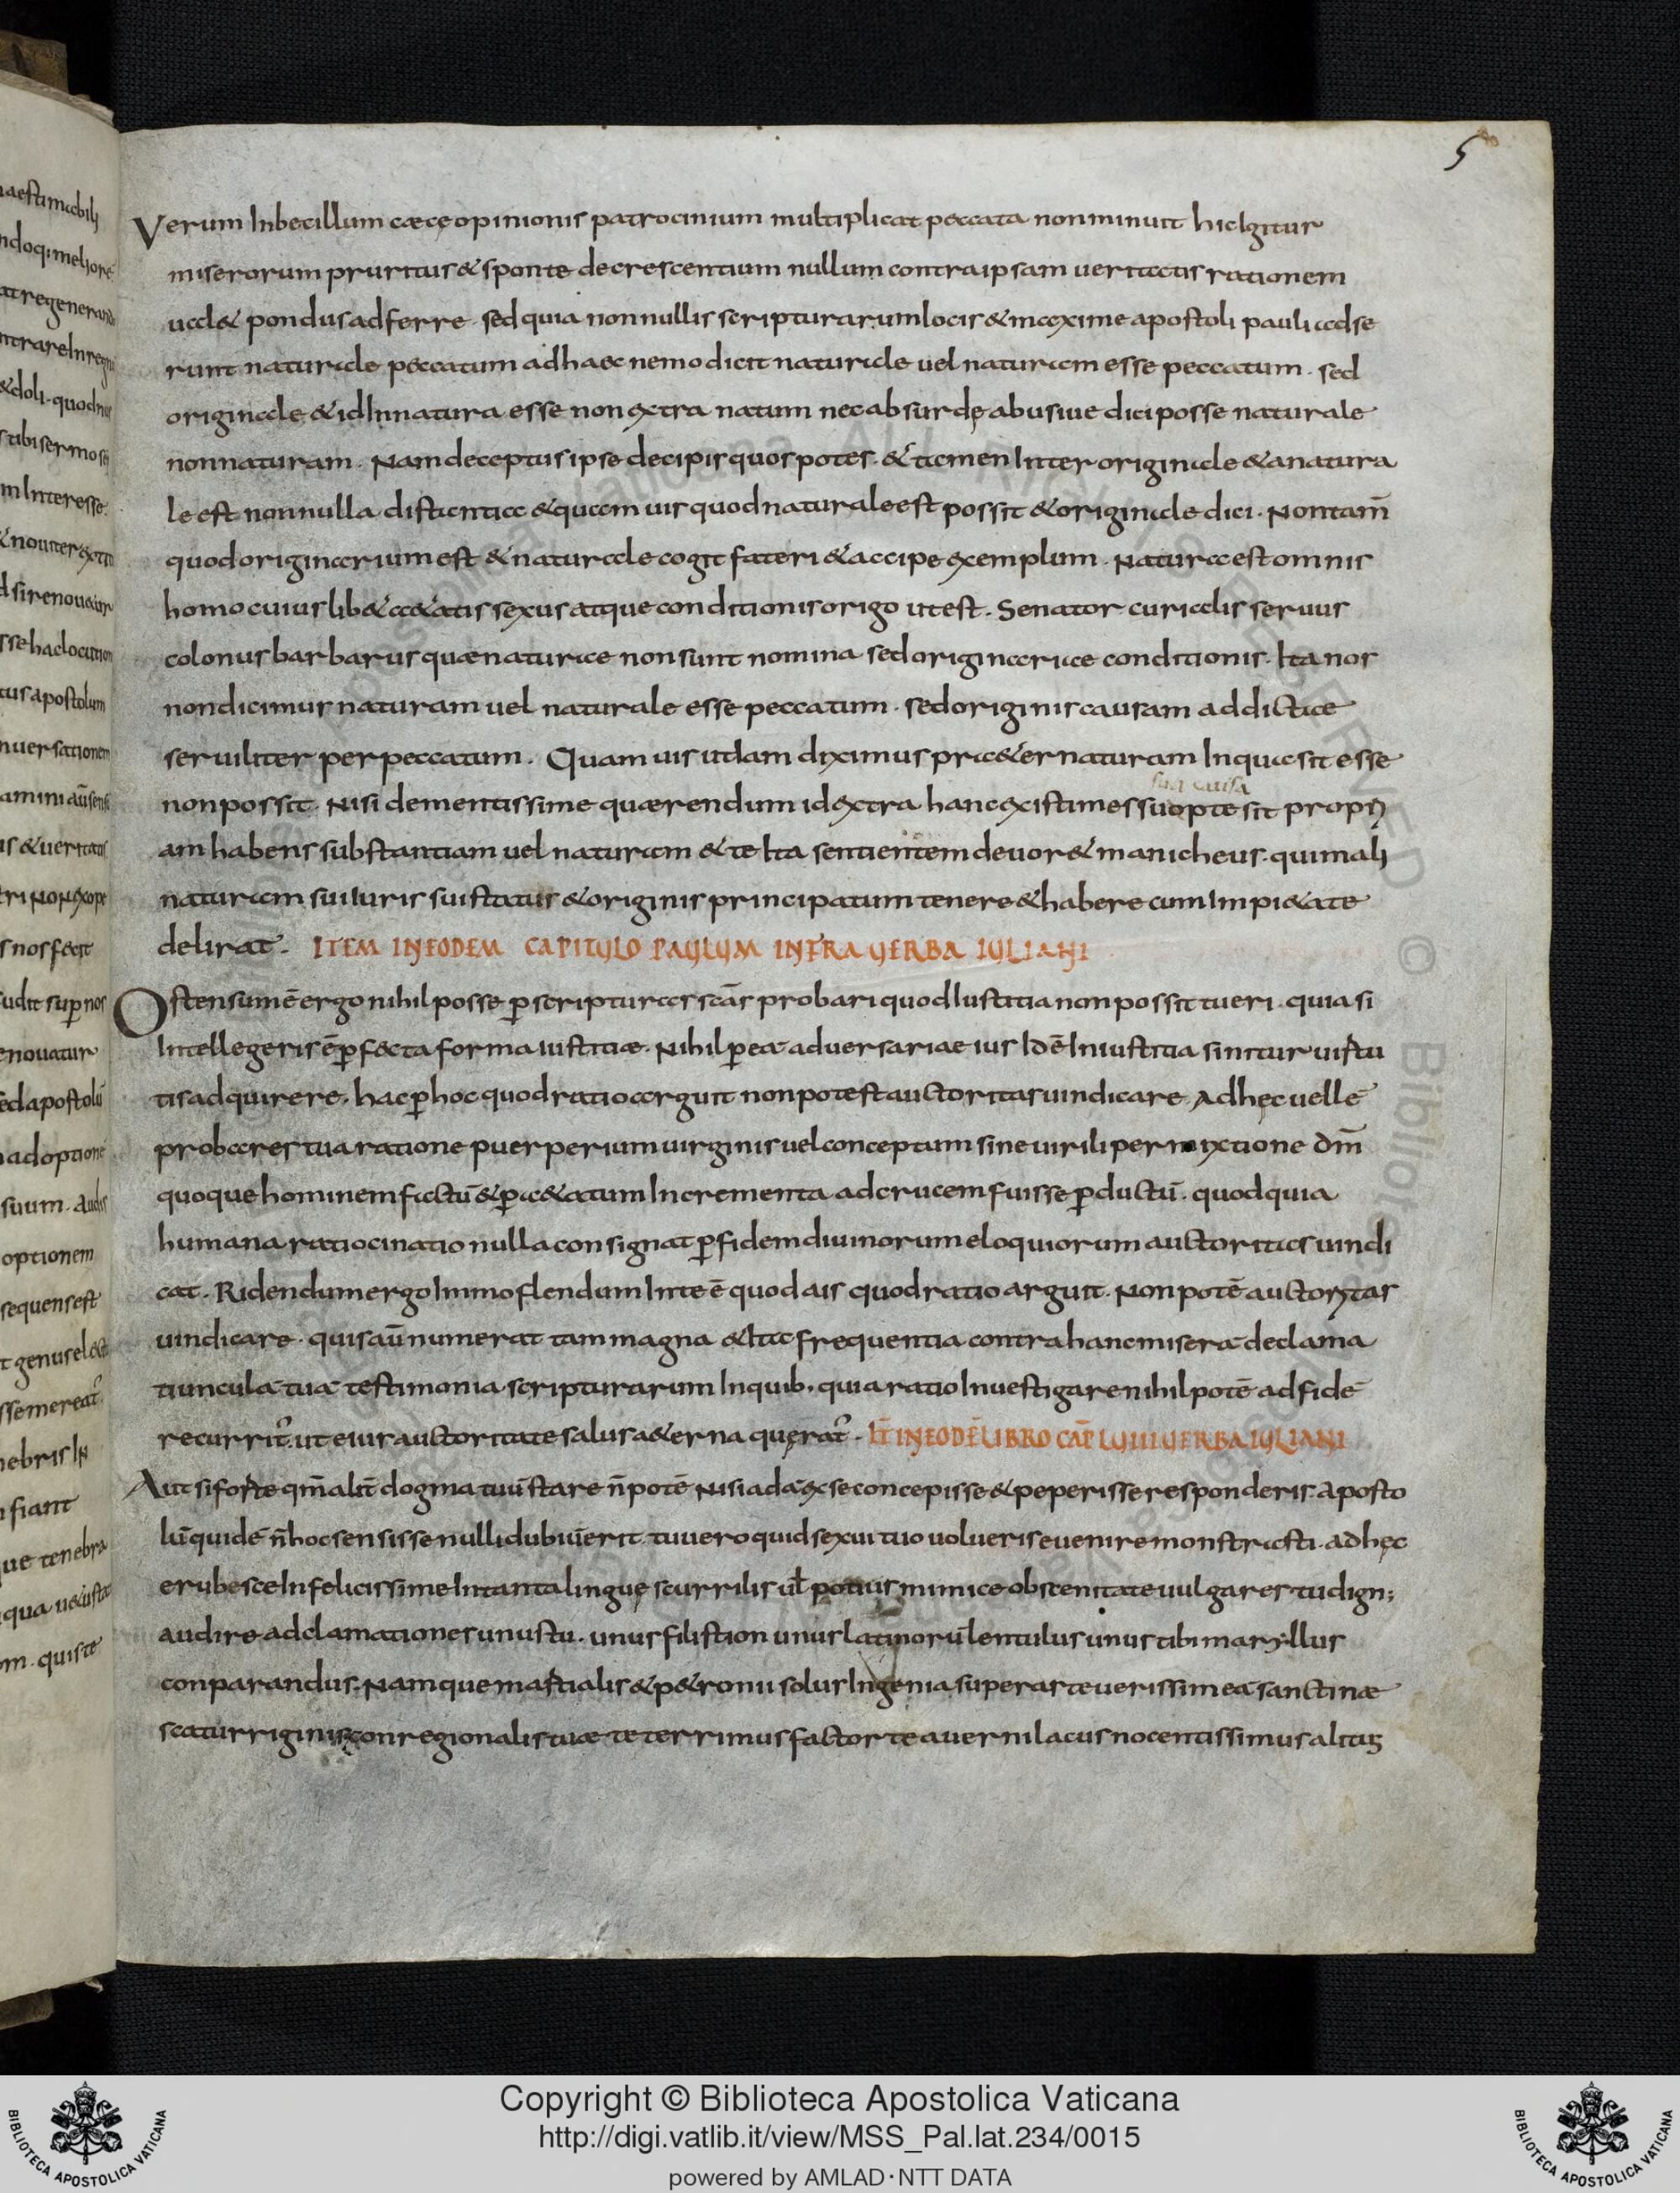 5
Verum Inbecillum cæcę opinionis patrocinium multiplicat peccata non minuit hic Igitur
miserorum pruritus & sponte decrescentium nullum contra ipsam ueritatis rationem
ual& pondus adferre· sed quia nonnullis scripturarum locis & maxime apostoli pauli adse
runt naturale peccatum ad haec nemo dicit naturale uel naturam esse peccatum· sed
originale & id In natura esse non extra natum nec absurdę abusiue dici posse naturale
non naturam· Nam deceptus ipse decipis quos potes· & tamen Inter originale & a natura
le est nonnulla distantia & quam uis quod naturale est possit & originale dici· Non tam̄
quod originarium est & naturale cogit fateri & accipe exemplum· Natura est omnis
homo cuius lib& a&atis sexus atque conditionis origo ut est· Senator curialis seruus
colonus barbarus quæ naturae non sunt nomina sed originariae conditionis· Ita nos
non dicimus naturam uel naturale esse peccatum· sed originis causam addictae
seruiliter per peccatum· Quam uis utdam diximus pra&er naturam In qua sit esse
sua causa
non possit· Nisi dementissime quærendum id extra hanc existimes suopte sit propri
am habens substantiam uel naturam & te Ita sentientem deuor& manicheus· qui mali
naturam sui Iuris sui status & originis principatum tenere & habere cum Impi&ate
delirat· ITEM IN EODEM CAPITULO PAULUM INFRA UERBA IULIANI
Ostensum ē ergo nihil posse p̱ scripturas scās probari quod Iustitia non possit tueri· quia si
Intellegeris ē p̱fecta forma iustitiæ· Nihil p̱ ea aduersariae ius Id ē Iniustitia sinitur uistu
tis adquirere· hac p̱ hoc quod ratio arguit non potest auctoritas uindicare Adhęc uelle
probares tua ratione puerperium uirginis uel conceptum sine uirili permixtione dm̄
quoque hominem fictū & p̱ a&atum Incrementa ad crucem fuisse p̱ductū· quod quia
humana ratiocinatio nulla consignat p̱ fidem diuinorum eloquiorum auctoritas uindi
cat· Ridendum ergo Immo flendum Inte ē quod ais quod ratio arguit· Non potē auctoritas
uindicare· quis aū numerat tam magna & tac frequentia contra hanc miserā declama
tiunculā tuā testimonia scripturarum In quib· quia ratio Inuestigare nihil potē ad fidē
recurrit̉· ut eius auctoritate salus a&erna quęrat̉· IT̄ IN EODĒ LIBRO CAP̄ LUIII UERBA IULIANI
Aut si forte qm̄ alit̄ dogma tuū stare n̄ potē Nisi adā & se concepisse & peperisse responderis· aposto
lū quidē n̄ hoc sensisse nulli dubiū erit· tu uero quid sexui tuo uolueris euenire monstrasti· adhęc
erubesce Infelicissime In tanta linguę scurrilis ul̄ potius mimice obscenitate uulgares tu dign;
audire adclamationes unustu· unus filistion unus latinorū lentulus unus tibi maryllus
conparandus· Namque mastialis & p&ronii solus Ingenia superaste uerissimeā sanctinæ
scaturriginis conregionalis tuæ te terrimus factor te auerni lacus nocentissimus altus
Copyright © Biblioteca Apostolica Vaticana
http://digi.vatlib.it/view/MSS_Pal.lat.234/0015
powered by AMLAD·NTT DATA